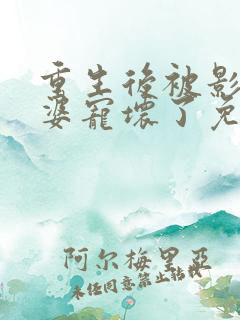 重生後被影
婆寵壞了免
阿尔梅里亞
未经同意禁止转载